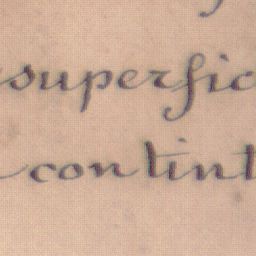 superfic
contint